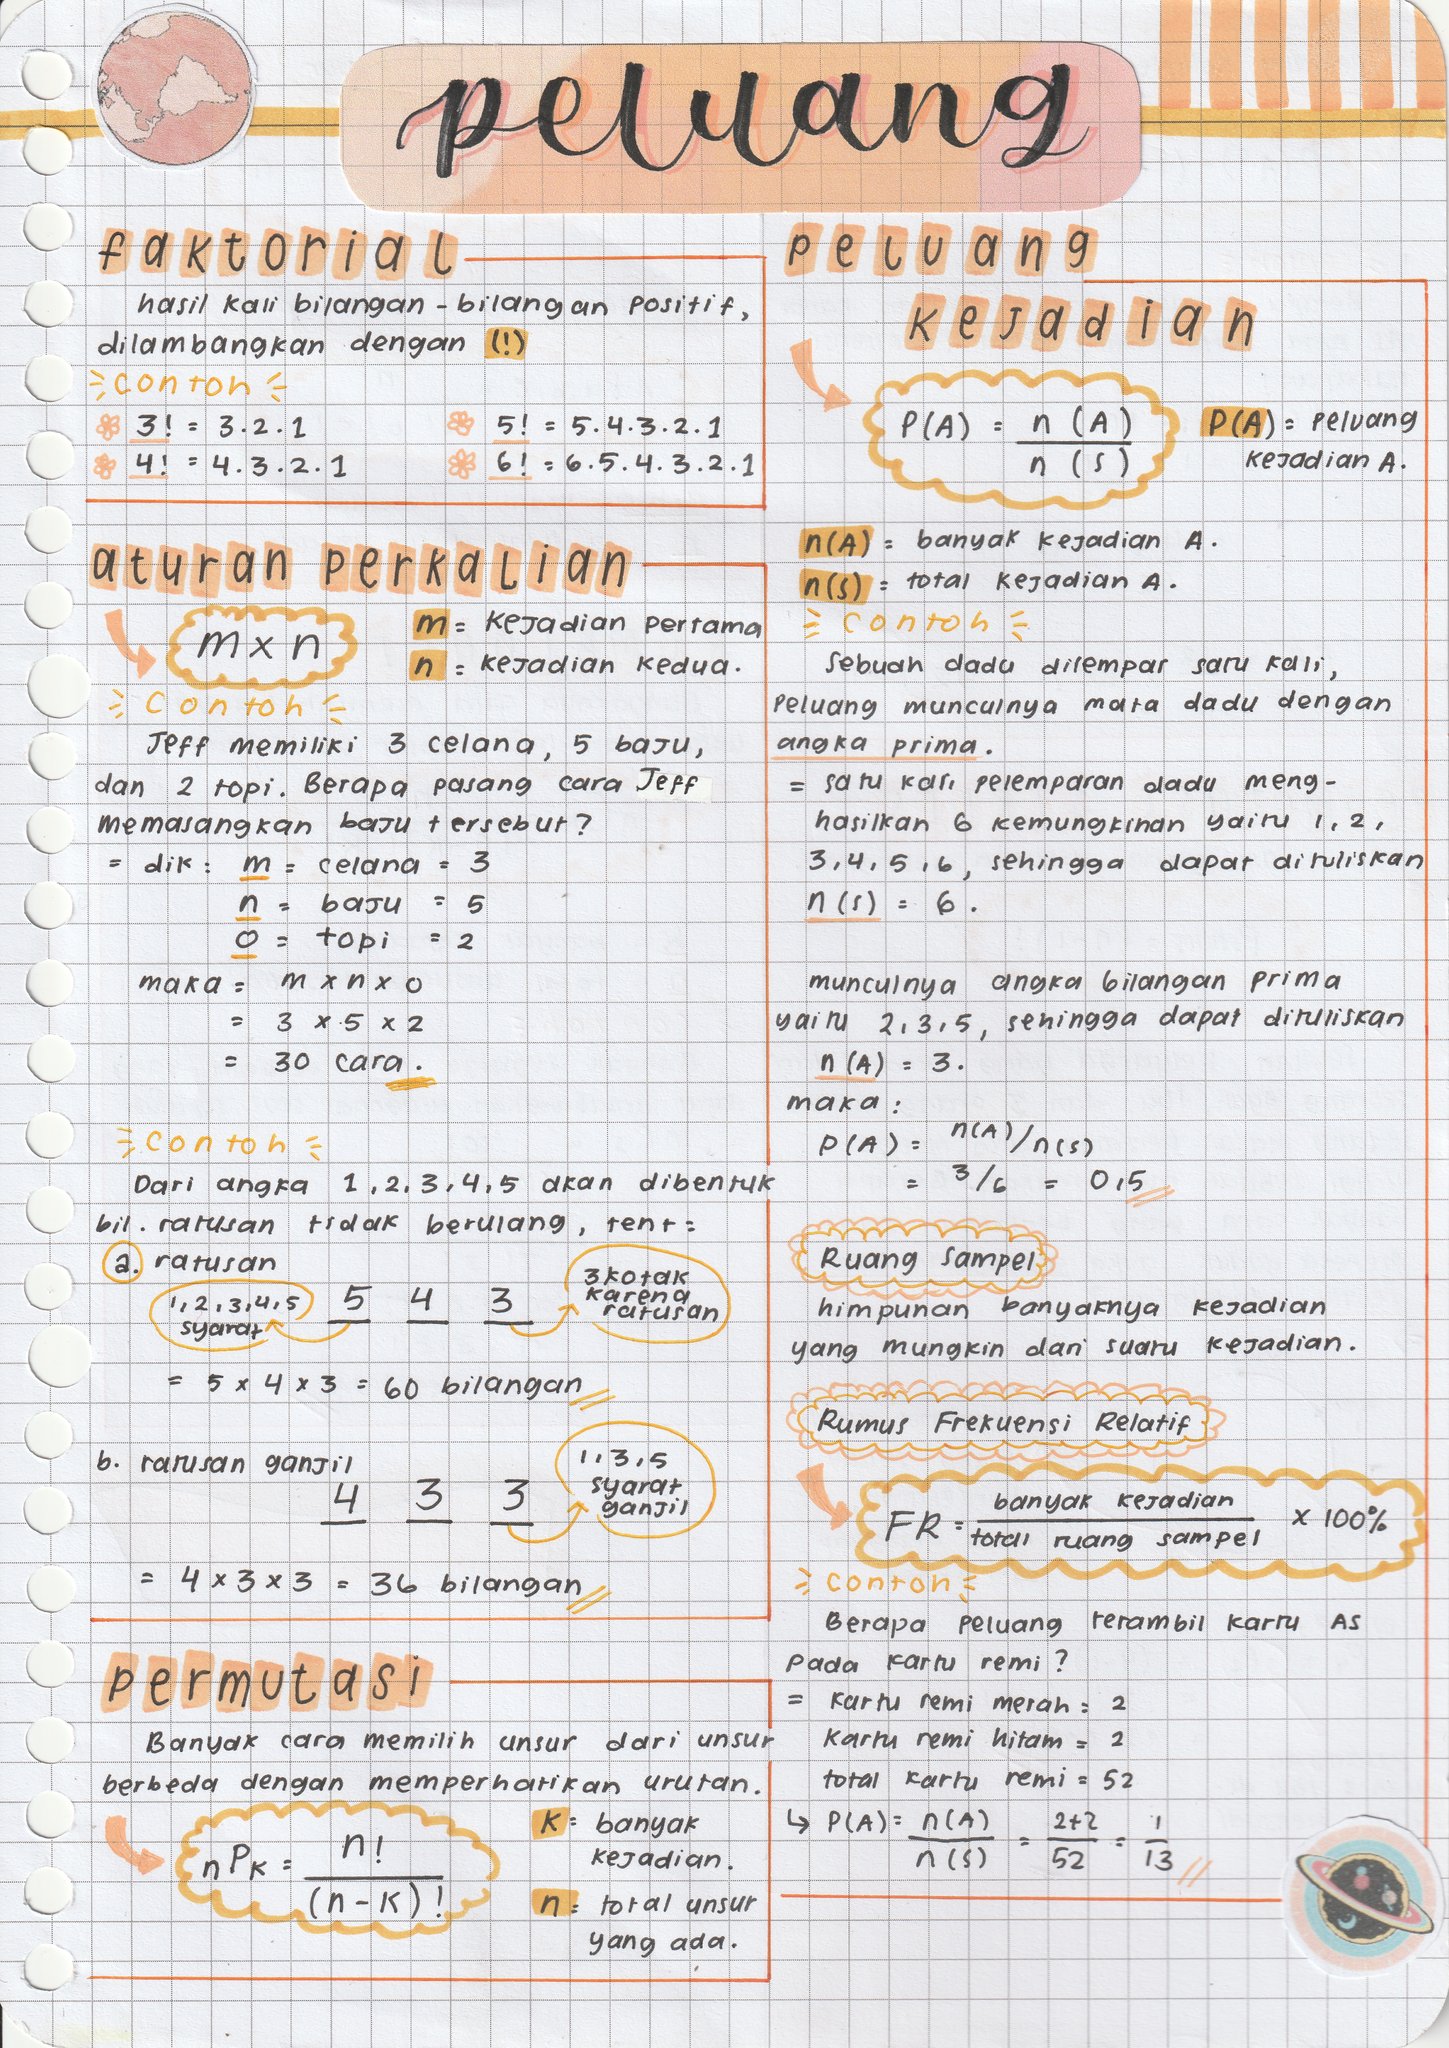 peluang
faktorial
hasil kali bilangan-bilangan positif,
dilambangkan dengan (!)
contoh
3! = 3.2.1
5! = 5.4.3.2.1
4! = 4.3.2.1
6! = 6.5.4.3.2.1
aturan perkalian
m x n
m = kejadian pertama
n = kejadian kedua.
contoh
Jeff memiliki 3 celana, 5 baju,
dan 2 topi. Berapa pasang cara Jeff
memasangkan baju tersebut?
= dik : m = celana = 3
n = baju = 5
o = topi = 2
maka = m x n x o
= 3 x 5 x 2
= 30 cara.
contoh
Dari angka 1,2,3,4,5 akan dibentuk
bil. ratusan tidak berulang, tent :
a. ratusan
1,2,3,4,5
syarat
5 4 3
3 kotak
karena
ratusan
= 5 x 4 x 3 = 60 bilangan
b. ratusan ganjil
4 3 3
1,3,5
syarat
ganjil
= 4 x 3 x 3 = 36 bilangan
permutasi
Banyak cara memilih unsur dari unsur
berbeda dengan memperhatikan urutan.
nPk = n! / (n-k)!
k = banyak
kejadian.
n = total unsur
yang ada.
peluang
kejadian
P(A) = n(A) / n(s)
P(A) = peluang
kejadian A.
n(A) = banyak kejadian A.
n(s) = total kejadian A.
contoh
Sebuah dadu dilempar satu kali,
peluang munculnya mata dadu dengan
angka prima.
= satu kali pelemparan dadu meng-
hasilkan 6 kemungkinan yaitu 1,2,
3,4,5,6, sehingga dapat dituliskan
n(s) = 6.
munculnya angka bilangan prima
yaitu 2,3,5, sehingga dapat dituliskan
n(A) = 3.
maka :
P(A) = n(A)/n(s)
= 3/6 = 0,5
Ruang Sampel
himpunan banyaknya kejadian
yang mungkin dari suatu kejadian.
Rumus Frekuensi Relatif
FR = banyak kejadian / total ruang sampel x 100%
contoh
Berapa peluang terambil kartu AS
pada kartu remi?
= kartu remi merah = 2
kartu remi hitam = 2
total kartu remi = 52
↳ P(A) = n(A) / n(s) = 2+2 / 52 = 1 / 13